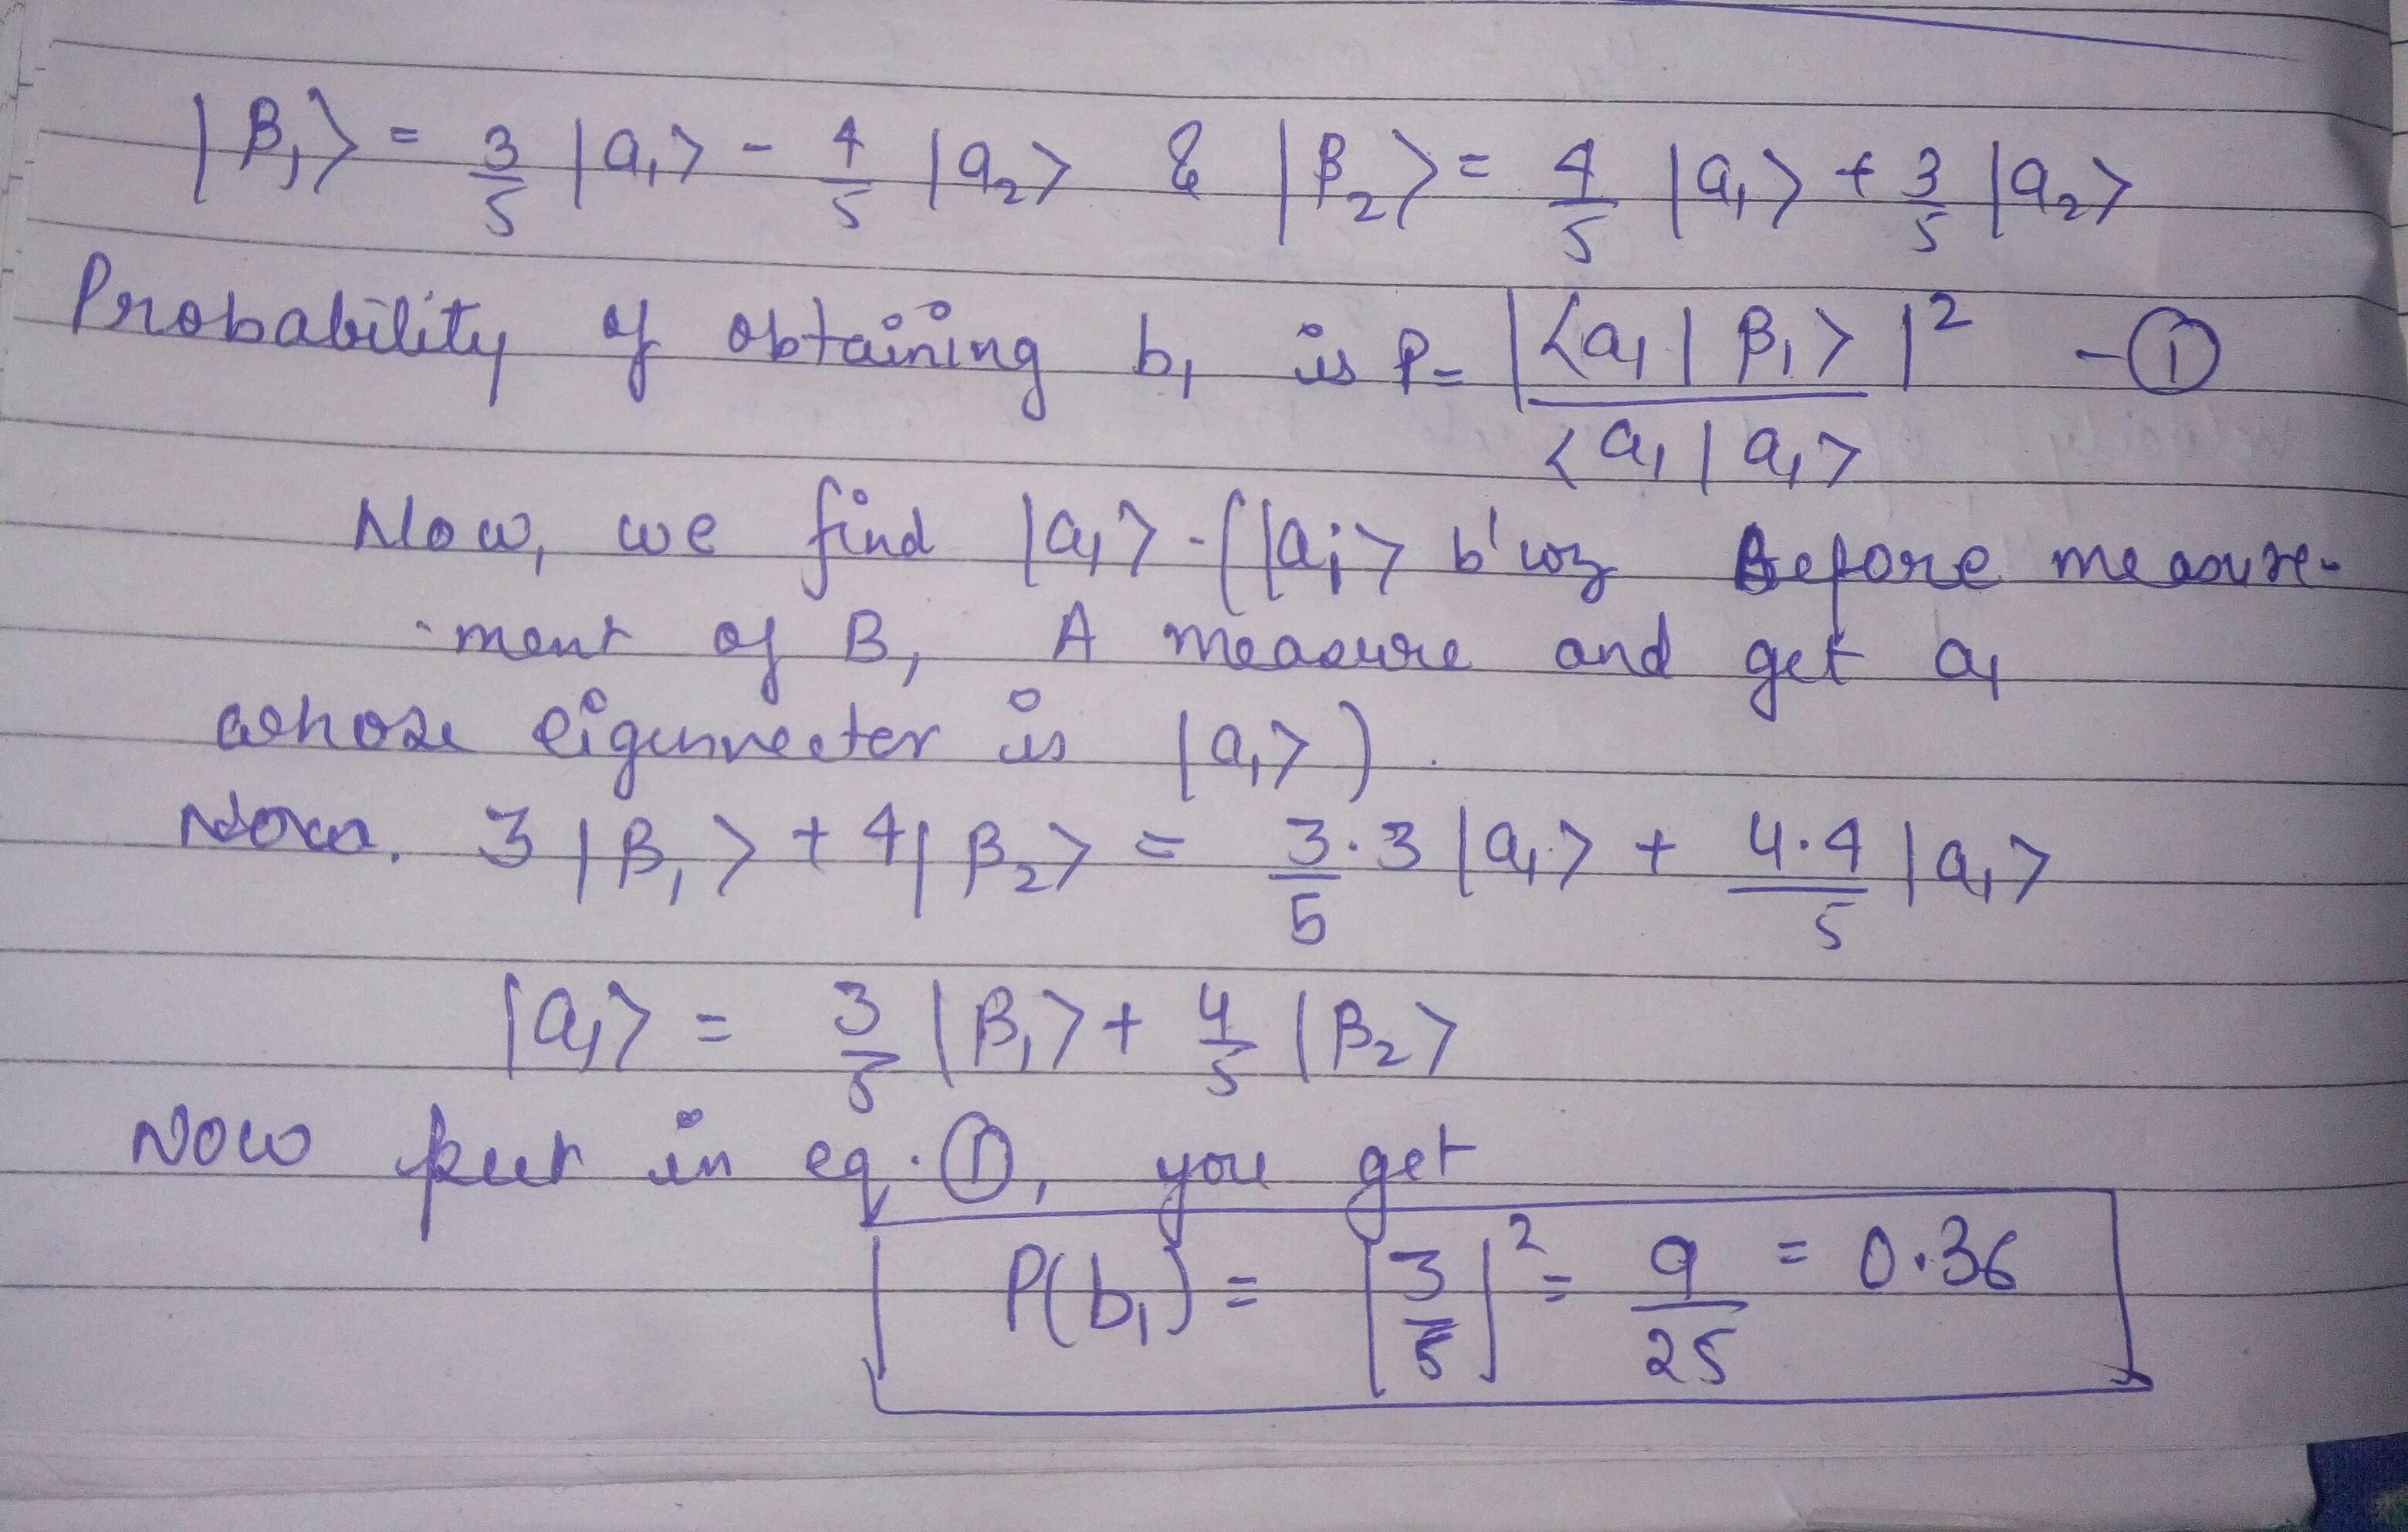 |β₁⟩ = 3/5 |a₁⟩ - 4/5 |a₂⟩ & |β₂⟩ = 4/5 |a₁⟩ + 3/5 |a₂⟩
Probability of obtaining b₁ is P = |⟨a₁|β₁⟩|² / ⟨a₁|a₁⟩ - ①
Now, we find |a₁⟩ - (|a₁⟩ b'coz Before measure-
-ment of B, A measure and get a₁
whose eigenvector is |a₁⟩).
Now, 3|β₁⟩ + 4|β₂⟩ = 3·3/5 |a₁⟩ + 4·4/5 |a₁⟩
|a₁⟩ = 3/5 |β₁⟩ + 4/5 |β₂⟩
Now put in eq. ①, you get
P(b₁) = |3/5|² = 9/25 = 0.36